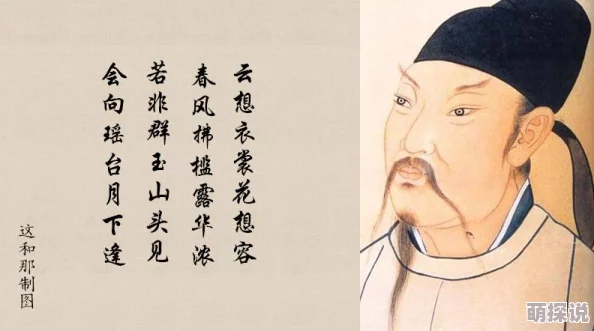 云想衣裳花想容
春风拂槛露华浓
若非群玉山头见
会向瑶台月下逢
这和那制图
萌探说